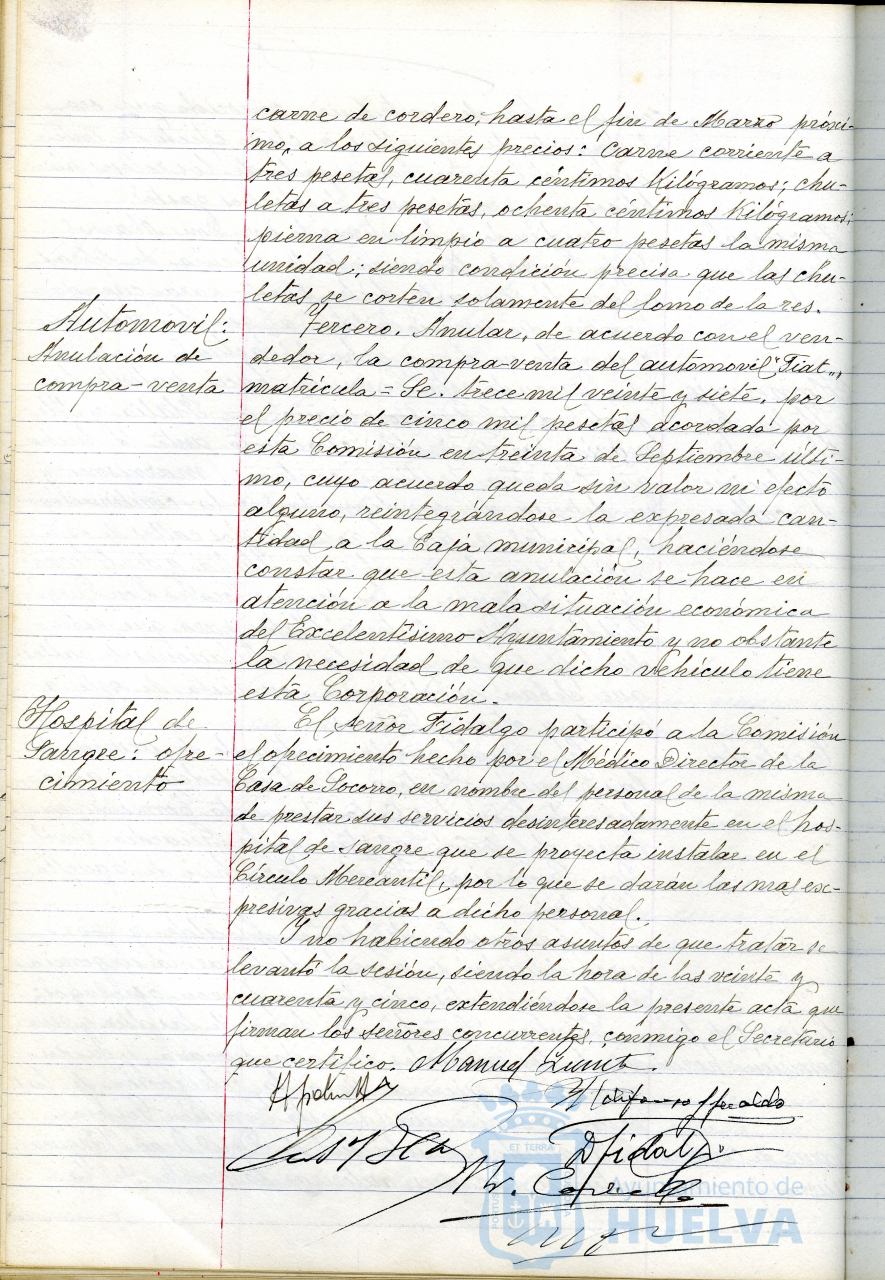 carne de cordero, hasta el fin de Marzo próxi-
mo, a los siguientes precios: Carne corriente a
tres pesetas, cuarenta céntimos Kilógramos; chu-
letas a tres pesetas, ochenta céntimos Kilógramos;
pierna en limpio a cuatro pesetas la misma
unidad; siendo condición precisa que las chu-
letas se corten solamente del lomo de la res.
Automovil:
Anulación de
compra-venta
Tercero. Anular, de acuerdo con el ven-
dedor, la compra-venta del automovil "Fiat",
matrícula = Se. trece mil veinte y siete, por
el precio de cinco mil pesetas acordada por
esta Comisión en treinta de Septiembre últi-
mo, cuyo acuerdo queda sin valor ni efecto
alguno, reintegrándose la expresada can-
tidad a la Caja municipal, haciéndose
constar que esta anulación se hace en
atención a la mala situación económica
del Excelentísimo Ayuntamiento y no obstante
la necesidad de que dicho vehículo tiene
esta Corporación.
Hospital de
Sangre: ofre-
cimiento
El señor Fidalgo participó a la Comisión
el ofrecimiento hecho por el Médico Director de la
Casa de Socorro, en nombre del personal de la misma
de prestar sus servicios desinteresadamente en el hos-
pital de sangre que se proyecta instalar en el
Círculo Mercantil, por lo que se darán las mas ex-
presivas gracias a dicho personal.
Y no habiendo otros asuntos de que tratar se
levantó la sesión, siendo la hora de las veinte y
cuarenta y cinco, extendiéndose la presente acta que
firman los señores concurrentes, conmigo el Secretario
que certifico. Manuel
D Fidalgo
ET TERRÆ
Ayuntamiento de
HUELVA